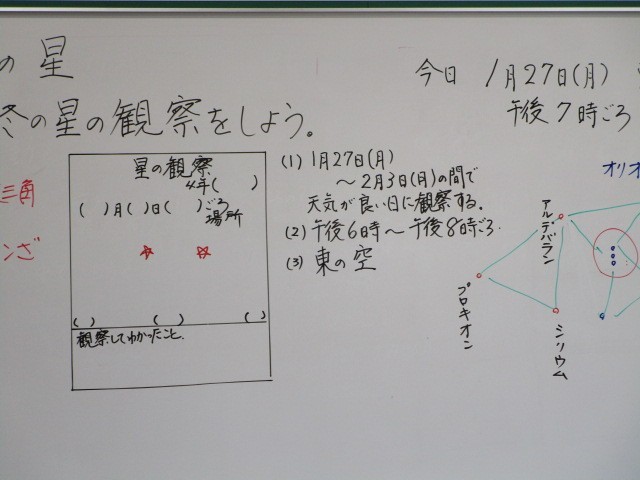 の 星
冬の星の観察をしよう。
三角
ンざ
星の観察
4年( )
( )月( )日( )ごろ
場所
( ) ( ) ( )
観察してわかったこと.
(1) 1月27日(月)
～2月3日(月)の間で
天気が良い日に観察する。
(2) 午後6時～午後8時ごろ.
(3) 東の空
今日 1月27日(月)
午後7時ごろ
オリオ
アルデバラン
プロキオン
シリウム